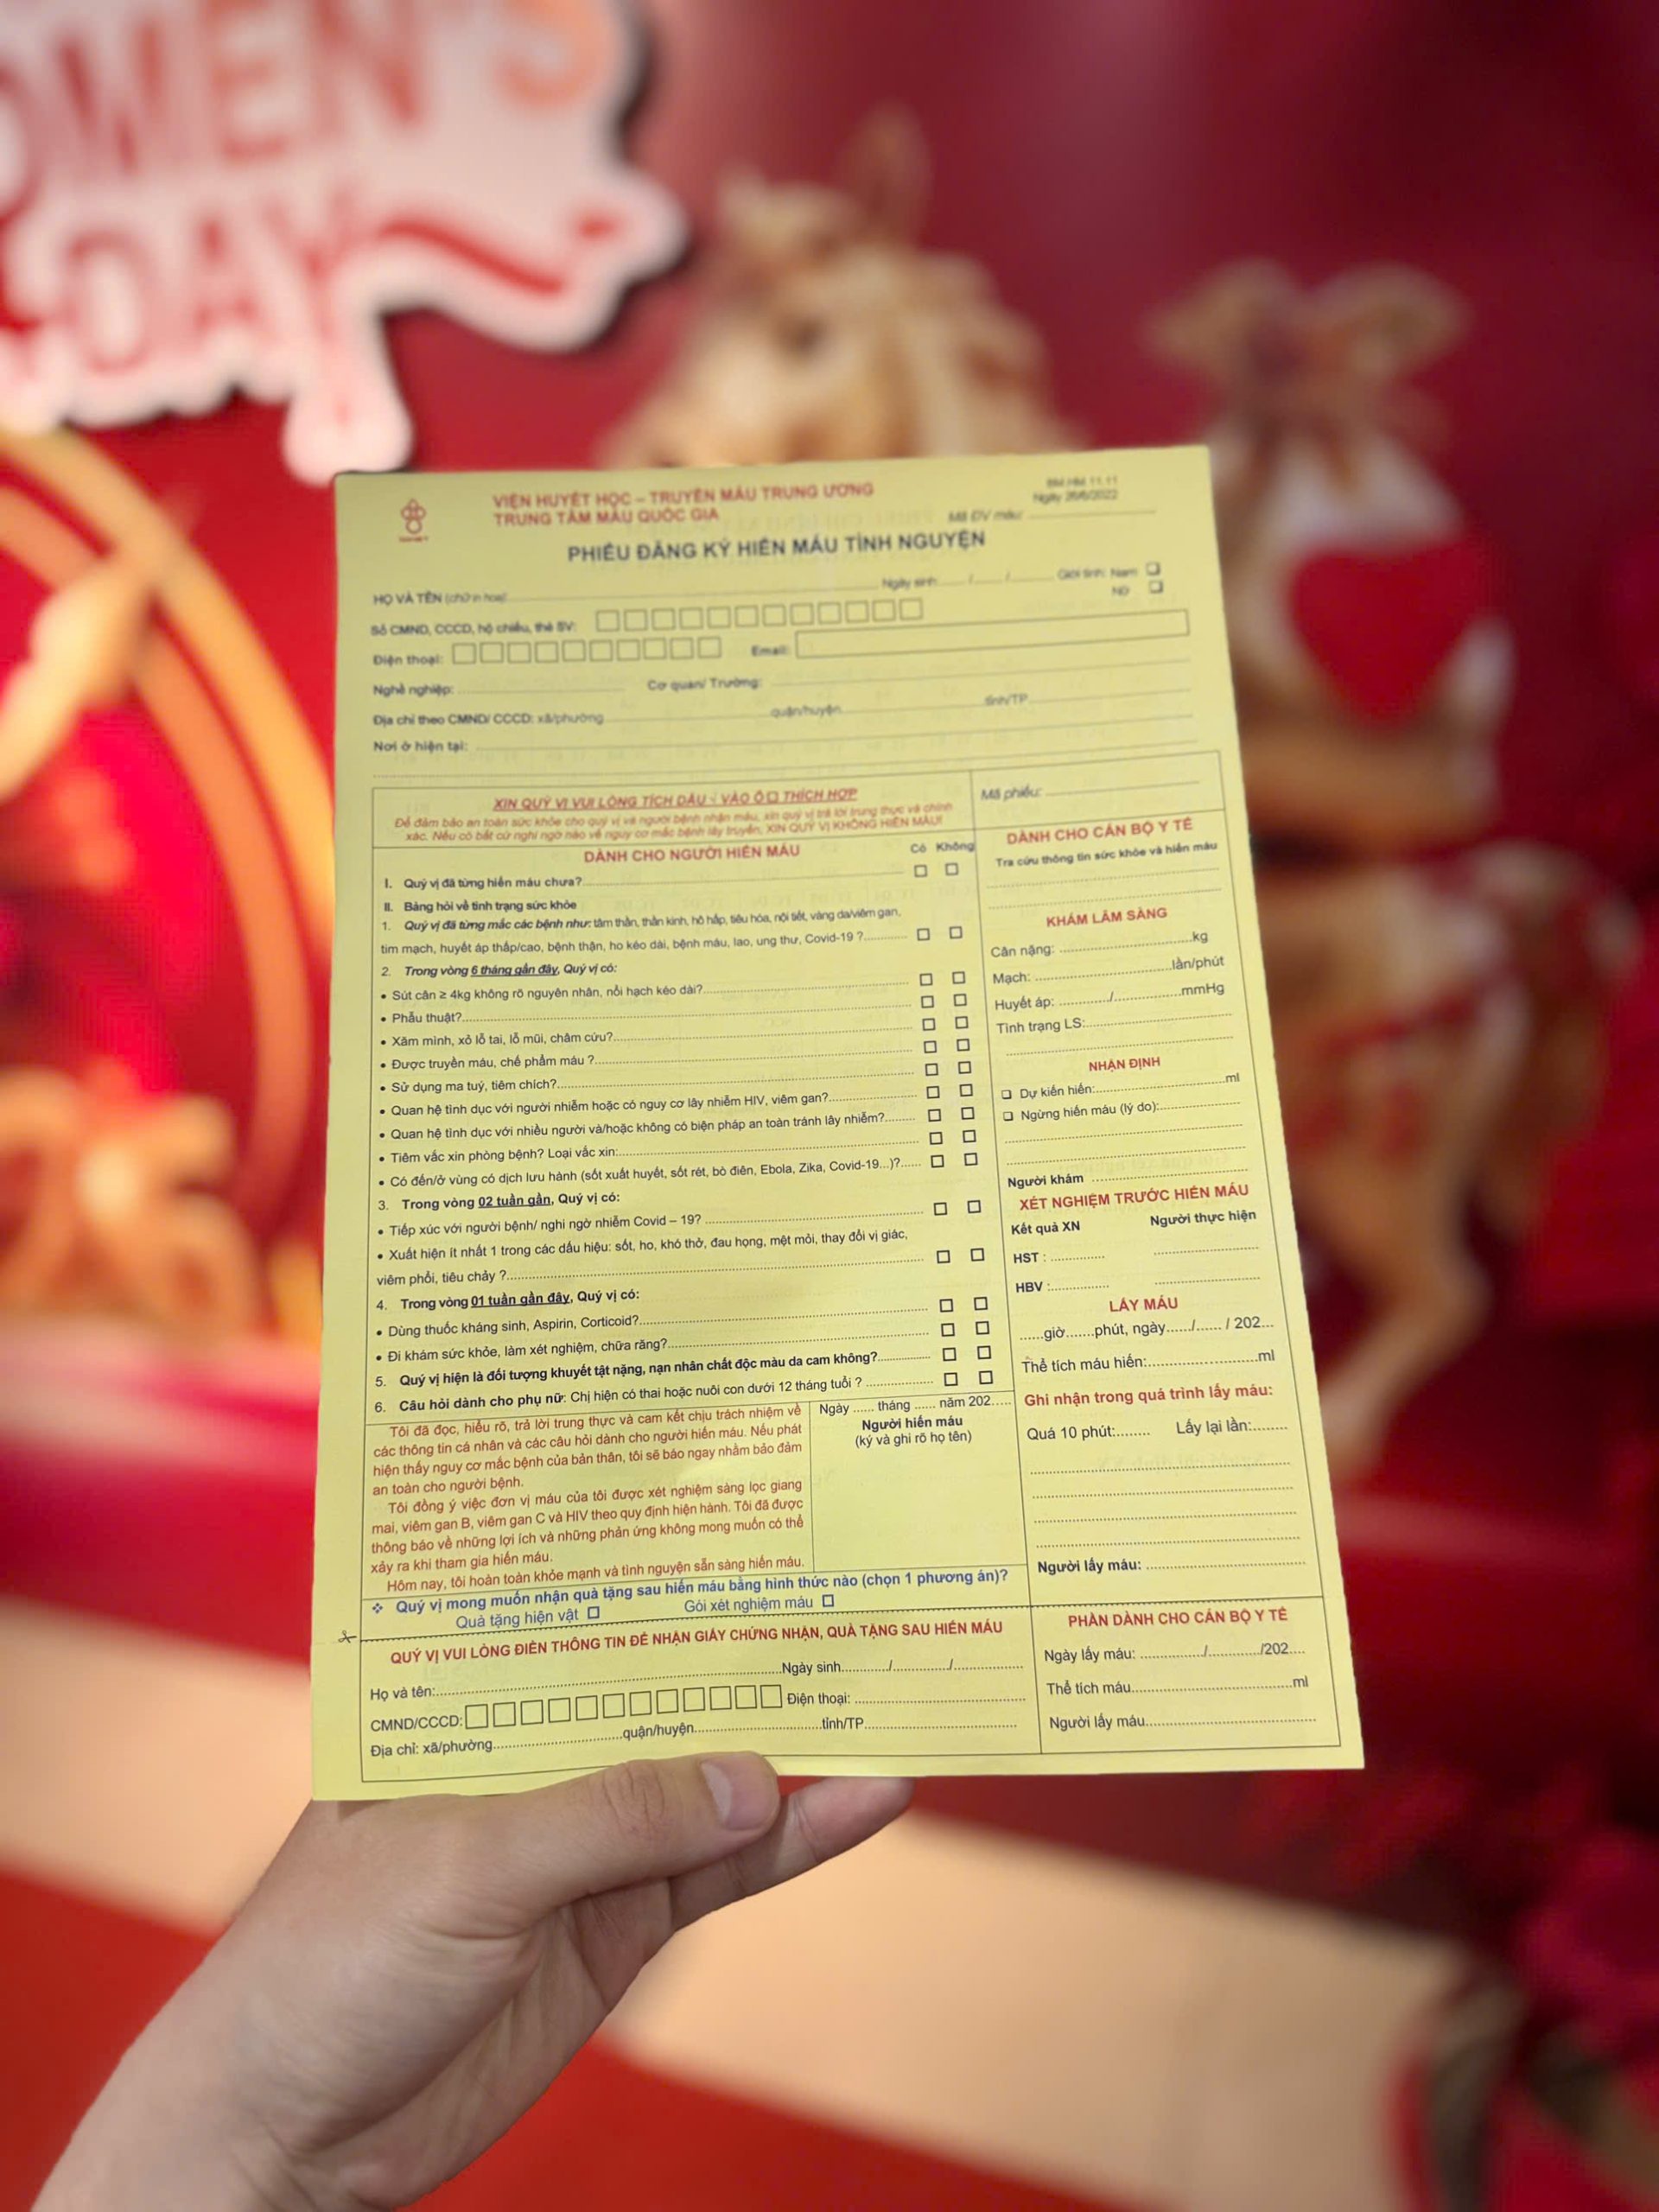 WOMEN'S
DAY
VIỆN HUYẾT HỌC – TRUYỀN MÁU TRUNG ƯƠNG
TRUNG TÂM MÁU QUỐC GIA
BM.HM.11.11
Ngày 26/6/2022
Mã ĐV máu:
PHIẾU ĐĂNG KÝ HIẾN MÁU TÌNH NGUYỆN
HỌ VÀ TÊN (chữ in hoa) Ngày sinh: / / Giới tính: Nam ☐
Nữ ☐
Số CMND, CCCD, hộ chiếu, thẻ SV:
Điện thoại: Email:
Nghề nghiệp: Cơ quan/ Trường:
Địa chỉ theo CMND/ CCCD: xã/phường quận/huyện tỉnh/TP
Nơi ở hiện tại:
XIN QUÝ VỊ VUI LÒNG TÍCH DẤU √ VÀO Ô ☐ THÍCH HỢP
Để đảm bảo an toàn sức khỏe cho quý vị và người bệnh nhận máu, xin quý vị trả lời trung thực và chính
xác. Nếu có bất cứ nghi ngờ nào về nguy cơ mắc bệnh lây truyền, XIN QUÝ VỊ KHÔNG HIẾN MÁU!
DÀNH CHO NGƯỜI HIẾN MÁU Có Không
I. Quý vị đã từng hiến máu chưa? ☐ ☐
II. Bảng hỏi về tình trạng sức khỏe
1. Quý vị đã từng mắc các bệnh như: tâm thần, thần kinh, hô hấp, tiêu hóa, nội tiết, vàng da/viêm gan,
tim mạch, huyết áp thấp/cao, bệnh thận, ho kéo dài, bệnh máu, lao, ung thư, Covid-19 ? ☐ ☐
2. Trong vòng 6 tháng gần đây, Quý vị có:
• Sút cân ≥ 4kg không rõ nguyên nhân, nổi hạch kéo dài? ☐ ☐
• Phẫu thuật? ☐ ☐
• Xăm mình, xỏ lỗ tai, lỗ mũi, châm cứu? ☐ ☐
• Được truyền máu, chế phẩm máu ? ☐ ☐
• Sử dụng ma tuý, tiêm chích? ☐ ☐
• Quan hệ tình dục với người nhiễm hoặc có nguy cơ lây nhiễm HIV, viêm gan? ☐ ☐
• Quan hệ tình dục với nhiều người và/hoặc không có biện pháp an toàn tránh lây nhiễm? ☐ ☐
• Tiêm vắc xin phòng bệnh? Loại vắc xin: ☐ ☐
• Có đến/ở vùng có dịch lưu hành (sốt xuất huyết, sốt rét, bò điên, Ebola, Zika, Covid-19...)? ☐ ☐
3. Trong vòng 02 tuần gần, Quý vị có:
• Tiếp xúc với người bệnh/ nghi ngờ nhiễm Covid – 19? ☐ ☐
• Xuất hiện ít nhất 1 trong các dấu hiệu: sốt, ho, khó thở, đau họng, mệt mỏi, thay đổi vị giác,
viêm phổi, tiêu chảy ? ☐ ☐
4. Trong vòng 01 tuần gần đây, Quý vị có:
• Dùng thuốc kháng sinh, Aspirin, Corticoid? ☐ ☐
• Đi khám sức khỏe, làm xét nghiệm, chữa răng? ☐ ☐
5. Quý vị hiện là đối tượng khuyết tật nặng, nạn nhân chất độc màu da cam không? ☐ ☐
6. Câu hỏi dành cho phụ nữ: Chị hiện có thai hoặc nuôi con dưới 12 tháng tuổi ? ☐ ☐
Tôi đã đọc, hiểu rõ, trả lời trung thực và cam kết chịu trách nhiệm về
các thông tin cá nhân và các câu hỏi dành cho người hiến máu. Nếu phát
hiện thấy nguy cơ mắc bệnh của bản thân, tôi sẽ báo ngay nhằm bảo đảm
an toàn cho người bệnh.
Tôi đồng ý việc đơn vị máu của tôi được xét nghiệm sàng lọc giang
mai, viêm gan B, viêm gan C và HIV theo quy định hiện hành. Tôi đã được
thông báo về những lợi ích và những phản ứng không mong muốn có thể
xảy ra khi tham gia hiến máu.
Hôm nay, tôi hoàn toàn khỏe mạnh và tình nguyện sẵn sàng hiến máu.
Ngày ...... tháng ...... năm 202.....
Người hiến máu
(ký và ghi rõ họ tên)
❖ Quý vị mong muốn nhận quà tặng sau hiến máu bằng hình thức nào (chọn 1 phương án)?
Quà tặng hiện vật ☐ Gói xét nghiệm máu ☐
Mã phiếu:
DÀNH CHO CÁN BỘ Y TẾ
Tra cứu thông tin sức khỏe và hiến máu
KHÁM LÂM SÀNG
Cân nặng: kg
Mạch: lần/phút
Huyết áp: / mmHg
Tình trạng LS:
NHẬN ĐỊNH
☐ Dự kiến hiến: ml
☐ Ngừng hiến máu (lý do):
Người khám
XÉT NGHIỆM TRƯỚC HIẾN MÁU
Kết quả XN Người thực hiện
HST :
HBV :
LẤY MÁU
......giờ.......phút, ngày....../...... / 202...
Thể tích máu hiến: ml
Ghi nhận trong quá trình lấy máu:
Quá 10 phút:........ Lấy lại lần:........
Người lấy máu:
QUÝ VỊ VUI LÒNG ĐIỀN THÔNG TIN ĐỂ NHẬN GIẤY CHỨNG NHẬN, QUÀ TẶNG SAU HIẾN MÁU
Họ và tên: Ngày sinh / /
CMND/CCCD: Điện thoại:
Địa chỉ: xã/phường quận/huyện tỉnh/TP
PHẦN DÀNH CHO CÁN BỘ Y TẾ
Ngày lấy máu: / /202....
Thể tích máu ml
Người lấy máu